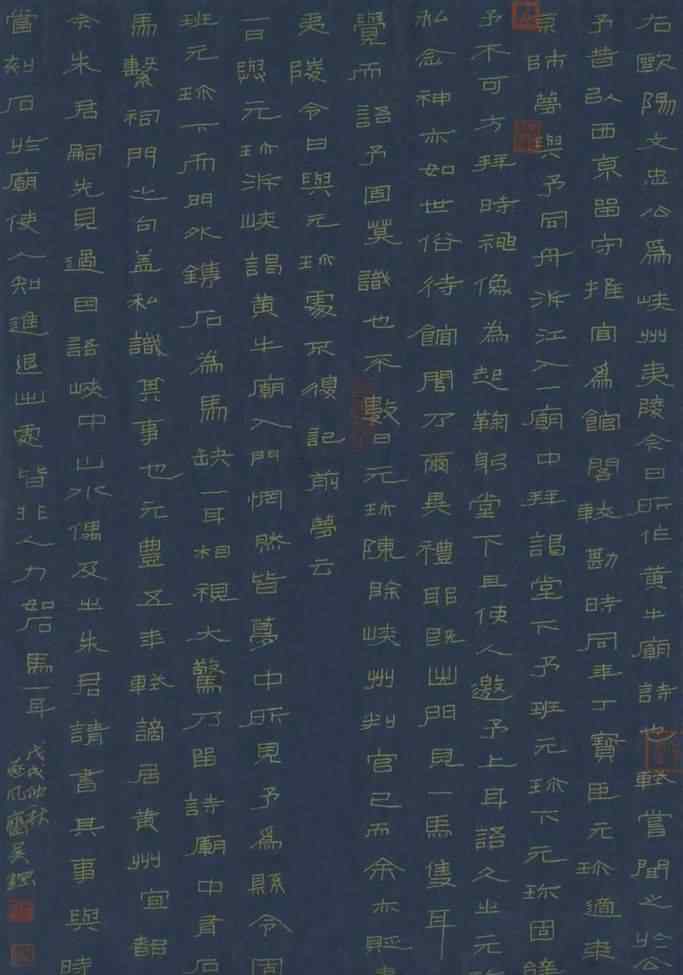 右歐陽文忠公爲峽州夷陵令日所作黃牛廟詩也軾嘗聞之於公
予昔以西京留守推官爲館閣較勘時同年丁寶臣元珍適來
京師夢與予同舟泝江入一廟中拜謁堂下予班元珍下元珍固辭
予不可方拜時神像為起鞠躬堂下且使人邀予上耳語久之元珍
私念神亦如世俗待館閣乃爾異禮耶既出門見一馬隻耳
覺而語予固莫識也不數日元珍除峽州判官已而余亦貶
夷陵令日與元珍處不復記前夢云
一日與元珍泝峽謁黃牛廟入門惘然皆夢中所見予爲縣令固
班元珍下而門外鐫石為馬缺一耳相視大驚乃留詩廟中有石
馬繫祠門之句蓋私識其事也元豐五年軾謫居黃州宜都
令朱君嗣先見過因語峽中山水偶及之朱君請書其事與詩
當刻石於廟使人知進退出處皆非人力如石馬一耳
戊戌仲秋